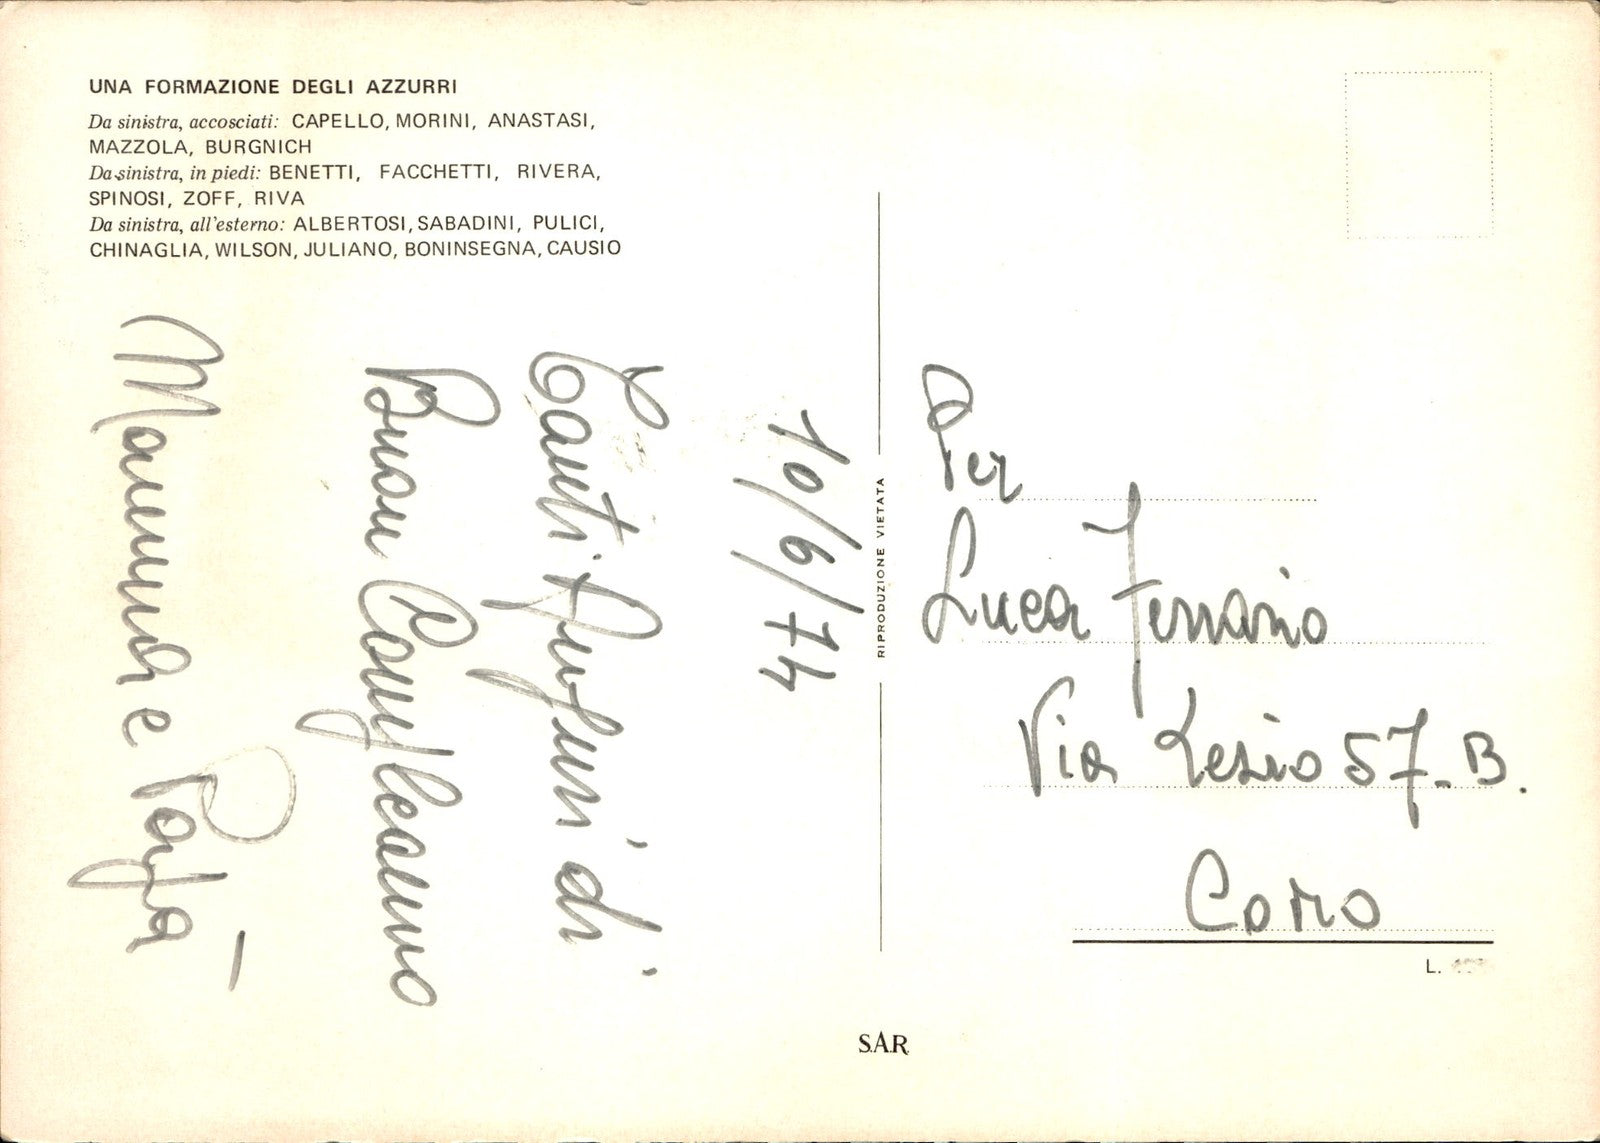 UNA FORMAZIONE DEGLI AZZURRI
Da sinistra, accosciati: CAPELLO, MORINI, ANASTASI,
MAZZOLA, BURGNICH
Da sinistra, in piedi: BENETTI, FACCHETTI, RIVERA,
SPINOSI, ZOFF, RIVA
Da sinistra, all'esterno: ALBERTOSI, SABADINI, PULICI,
CHINAGLIA, WILSON, JULIANO, BONINSEGNA, CAUSIO
10/6/74
Tanti Auguri di
Buon Compleanno
Mamma e Papà
RIPRODUZIONE VIETATA
Per
Luca Ferrario
Via 57-B.
Como
L.
S.A.R.